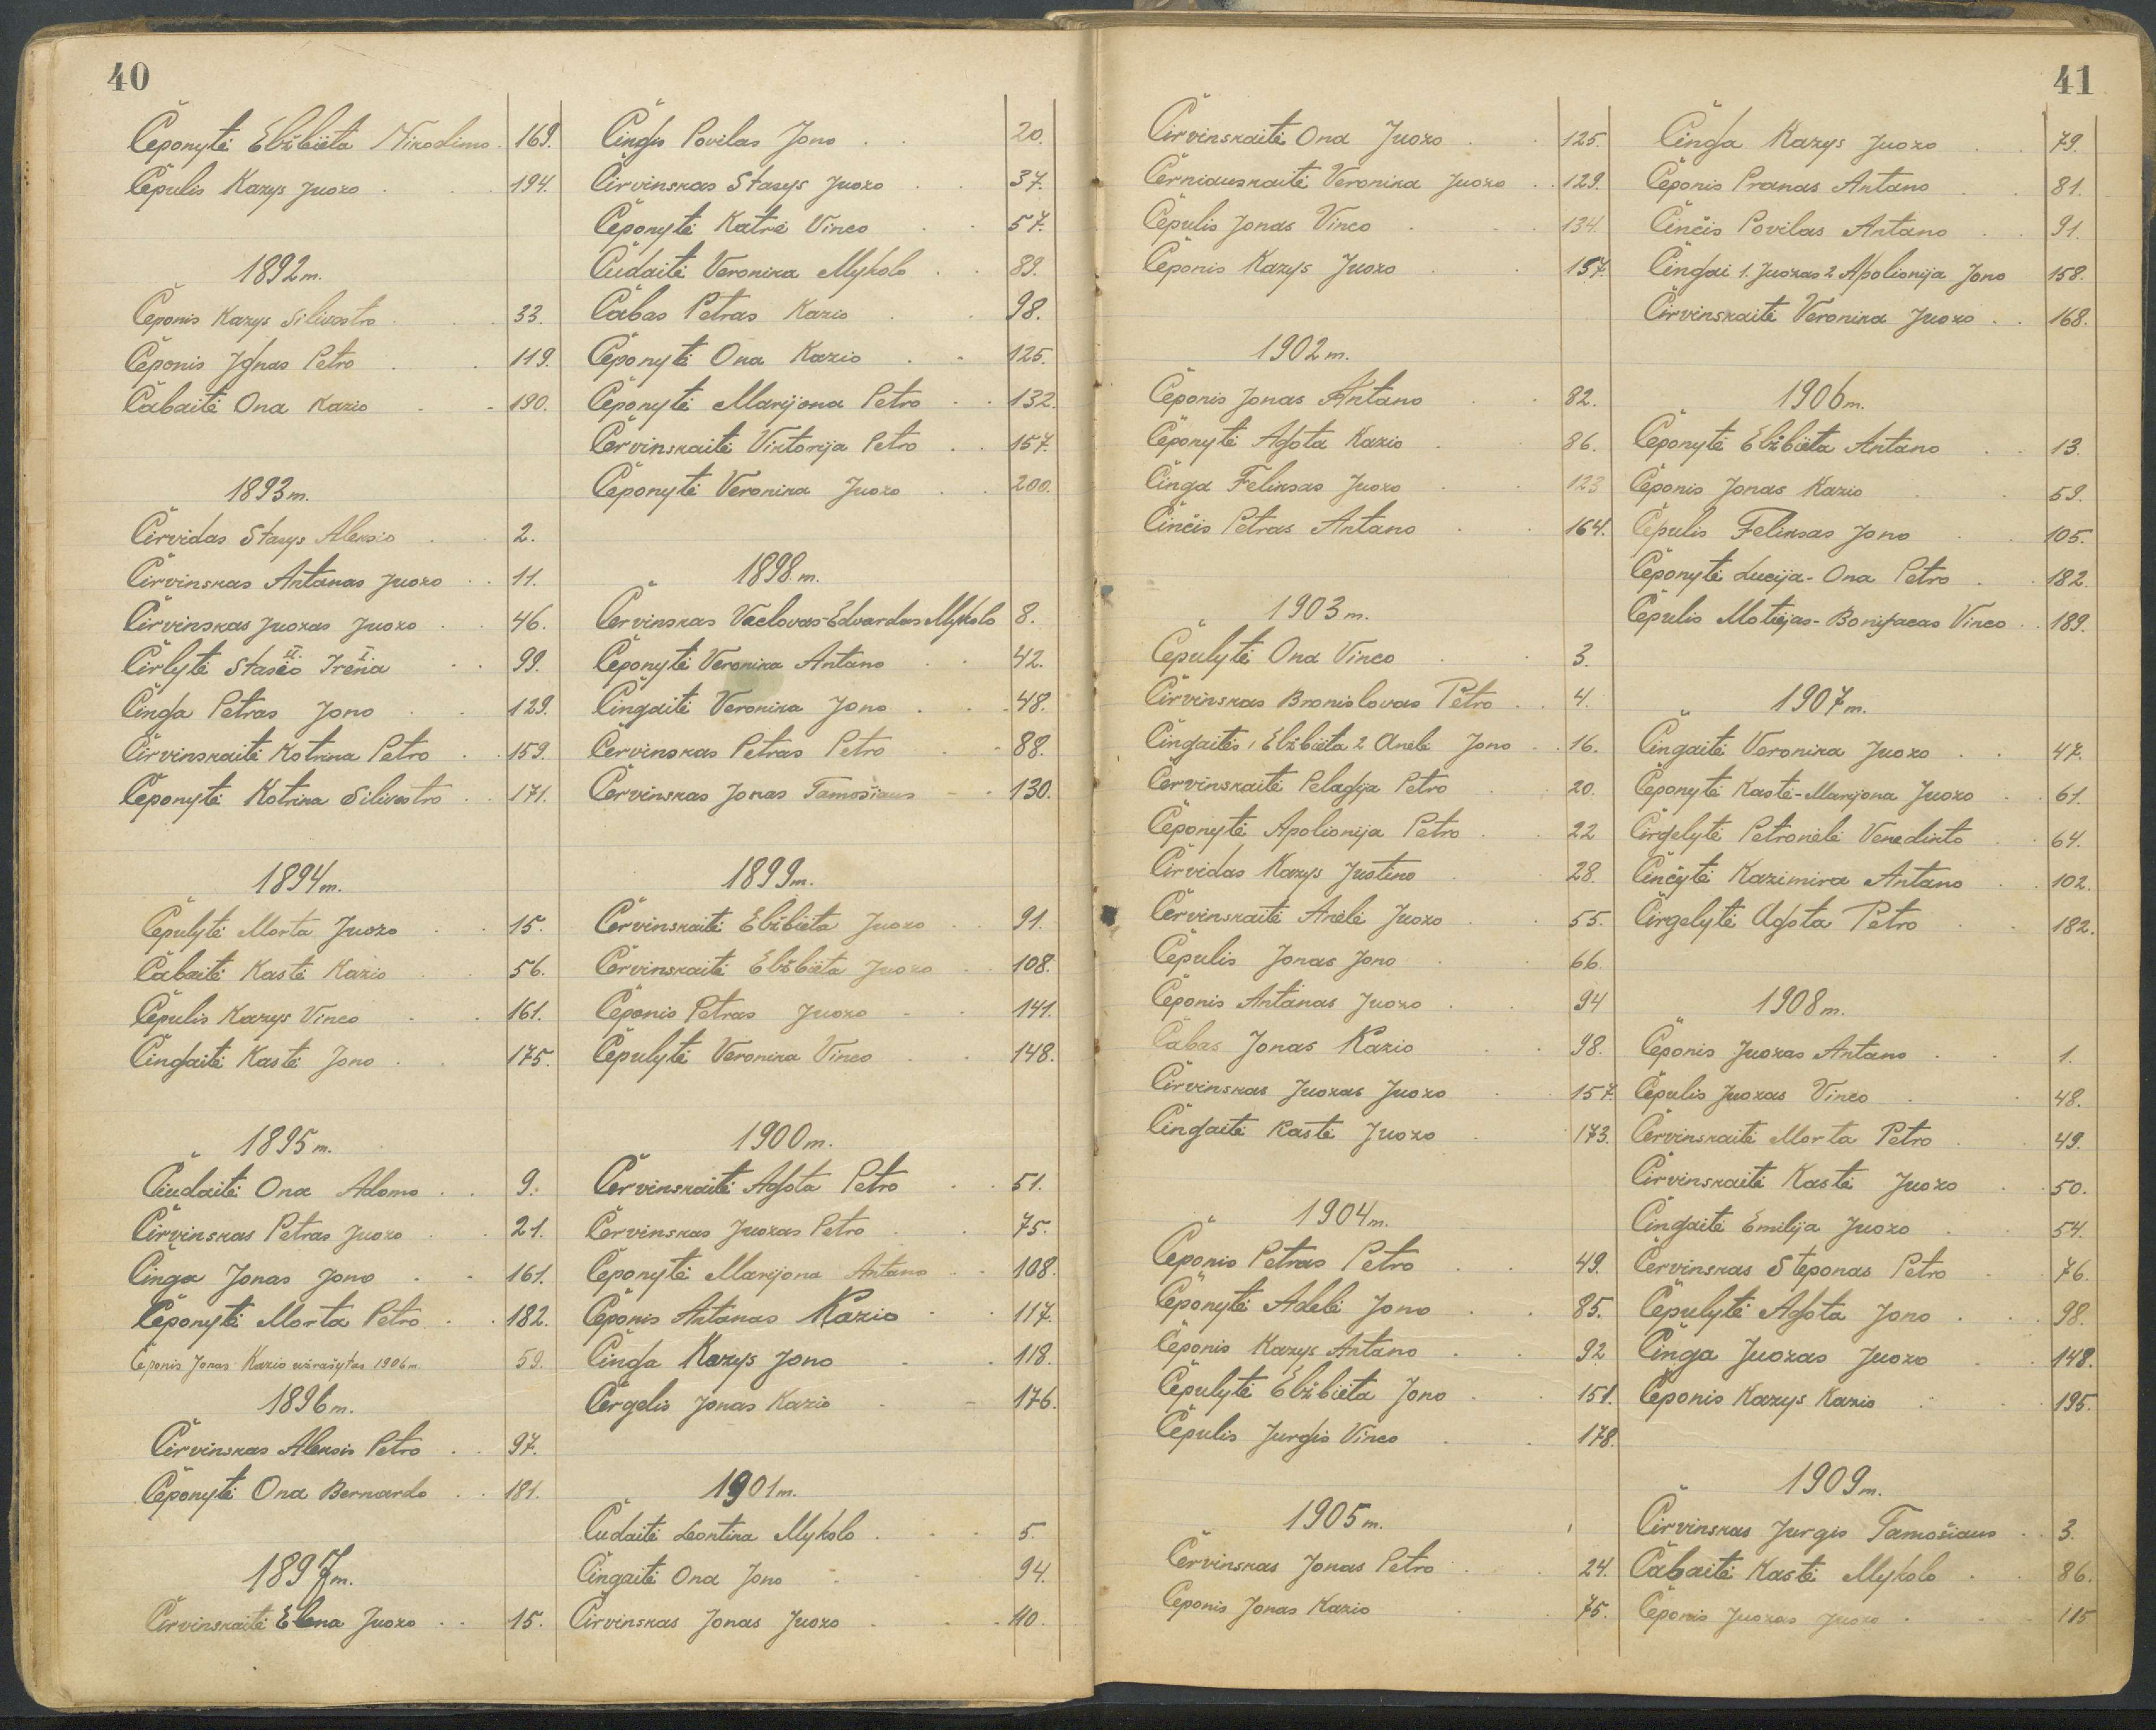 40
Čeponytė Elžbieta Nikodimo. 169.
Čepulis Kazys Juozo . . . 194.
1892 m.
Čeponis Kazys Silivestro . . . 33.
Čeponis Ignas Petro . . . 119.
Čabaitė Ona Kazio . . 190.
1893 m.
Čirvidas Stasys Aleksio . . 2.
Čirvinskas Antanas Juozo . . 11.
Čirvinskas Juozas Juozo . . 46.
Čirlytė Stasėo II. Irena I. . . 99.
Činga Petras Jono . . 129.
Čirvinskaitė Kotrina Petro . . 159.
Čeponytė Kotrina Silivestro . . 171.
1894 m.
Čepulytė Morta Juozo . . 15.
Čabaitė Kastė Kazio . . 56.
Čepulis Kazys Vinco . . 161.
Čingaitė Kastė Jono . . 175.
1895 m.
Čiudaitė Ona Adomo . . 9.
Čirvinskas Petras Juozo . . 21.
Činga Jonas Jono . . 161.
Čeponytė Morta Petro . . 182.
Čeponis Jonas Kazio užrašytas 1906 m. 59.
1896 m.
Čirvinskas Aleksis Petro . . 97.
Čeponytė Ona Bernardo . . 181.
1897 m.
Čirvinskaitė Elena Juozo . . 15.
Činga Povilas Jono . . 20.
Čirvinskas Stasys Juozo . . 37.
Čeponytė Katrė Vinco . . 57.
Čudaitė Veronika Mykolo . . 89.
Čabas Petras Kazio . . 98.
Čeponytė Ona Kazio . . 125.
Čeponytė Marijona Petro . . 132.
Červinskaitė Viktorija Petro . . 157.
Čeponytė Veronika Juozo . . 200.
1898 m.
Červinskas Vaclovas-Edvardas Mykolo 8.
Čeponytė Veronika Antano . . 42.
Čingaitė Veronika Jono . . 48.
Červinskas Petras Petro . . 88.
Červinskas Jonas Tamošiaus . . 130.
1899 m.
Červinskaitė Elžbieta Juozo . . 91.
Červinskaitė Elžbieta Juozo . . 108.
Čeponis Petras Juozo . . 141.
Čepulytė Veronika Vinco . . 148.
1900 m.
Červinskaitė Agota Petro . . 51.
Červinskas Juozas Petro . . 75.
Čeponytė Marijona Antano . . 108.
Čeponis Antanas Kazio . . 117.
Činga Kazys Jono . . 118.
Čergelis Jonas Kazio . . 176.
1901 m.
Čudaitė Leontina Mykolo . . . 5.
Čingaitė Ona Jono . . 94.
Čirvinskas Jonas Juozo . . . 110.
41
Čirvinskaitė Ona Juozo . . 125.
Černiauskaitė Veronika Juozo . . 129.
Čepulis Jonas Vinco . . . 134.
Čeponis Kazys Juozo . . 157.
1902 m.
Čeponis Jonas Antano . . 82.
Čeponytė Agota Kazio . . 86.
Činga Feliksas Juozo . . 123
Činčis Petras Antano . . 164.
1903 m.
Čepulytė Ona Vinco . . 3.
Čirvinskas Bronislovas Petro . . 4.
Čingaitės 1 Elžbieta 2 Anelė Jono . . 16.
Červinskaitė Pelagija Petro . . 20.
Čeponytė Apolionija Petro . . 22
Čirvidas Kazys Justino . . 28.
Červinskaitė Anelė Juozo . . 55.
Čepulis Jonas Jono . . 66.
Čeponis Antanas Juozo . . 94
Čabas Jonas Kazio . . 98.
Čirvinskas Juozas Juozo . 157.
Čingaitė Kastė Juozo . . 173.
1904 m.
Čeponis Petras Petro . . 49.
Čeponytė Adelė Jono . . 85.
Čeponis Kazys Antano . . 92
Čepulytė Elžbieta Jono . . 151.
Čepulis Jurgis Vinco . . 178.
1905 m.
Červinskas Jonas Petro . . 24.
Čeponis Jonas Kazio . . 75.
Činga Kazys Juozo . . 79.
Čeponis Pranas Antano . . 81.
Činčis Povilas Antano . . 91.
Čingai 1. Juozas 2 Apolionija Jono 158.
Čirvinskaitė Veronika Juozo . . 168.
1906 m.
Čeponytė Elžbieta Antano . . 13.
Čeponis Jonas Kazio . . 59.
Čepulis Feliksas Jono . . 105.
Čeponytė Lucija-Ona Petro . . 182.
Čepulis Motiejas-Bonifacas Vinco . . 189.
1907 m.
Čingaitė Veronika Juozo . . 47.
Čeponytė Kastė-Marijona Juozo . . 61.
Čirgelytė Petronėlė Venedikto . . 64.
Činčytė Kazimira Antano . . 102.
Čirgelytė Agota Petro . . 182.
1908 m.
Čeponis Juozas Antano . . 1.
Čepulis Juozas Vinco . . 48.
Červinskaitė Morta Petro . . 49.
Čirvinskaitė Kastė Juozo . . 50.
Čingaitė Emilija Juozo . . 54.
Červinskas Steponas Petro . . 76.
Čepulytė Agota Jono . . . 98.
Činga Juozas Juozo . . 148.
Čeponis Kazys Kazio . . 195.
1909 m.
Čirvinskas Jurgis Tamošiaus . . 3.
Čabaitė Kastė Mykolo . . 86.
Čeponis Juozas Juozo . . . 115